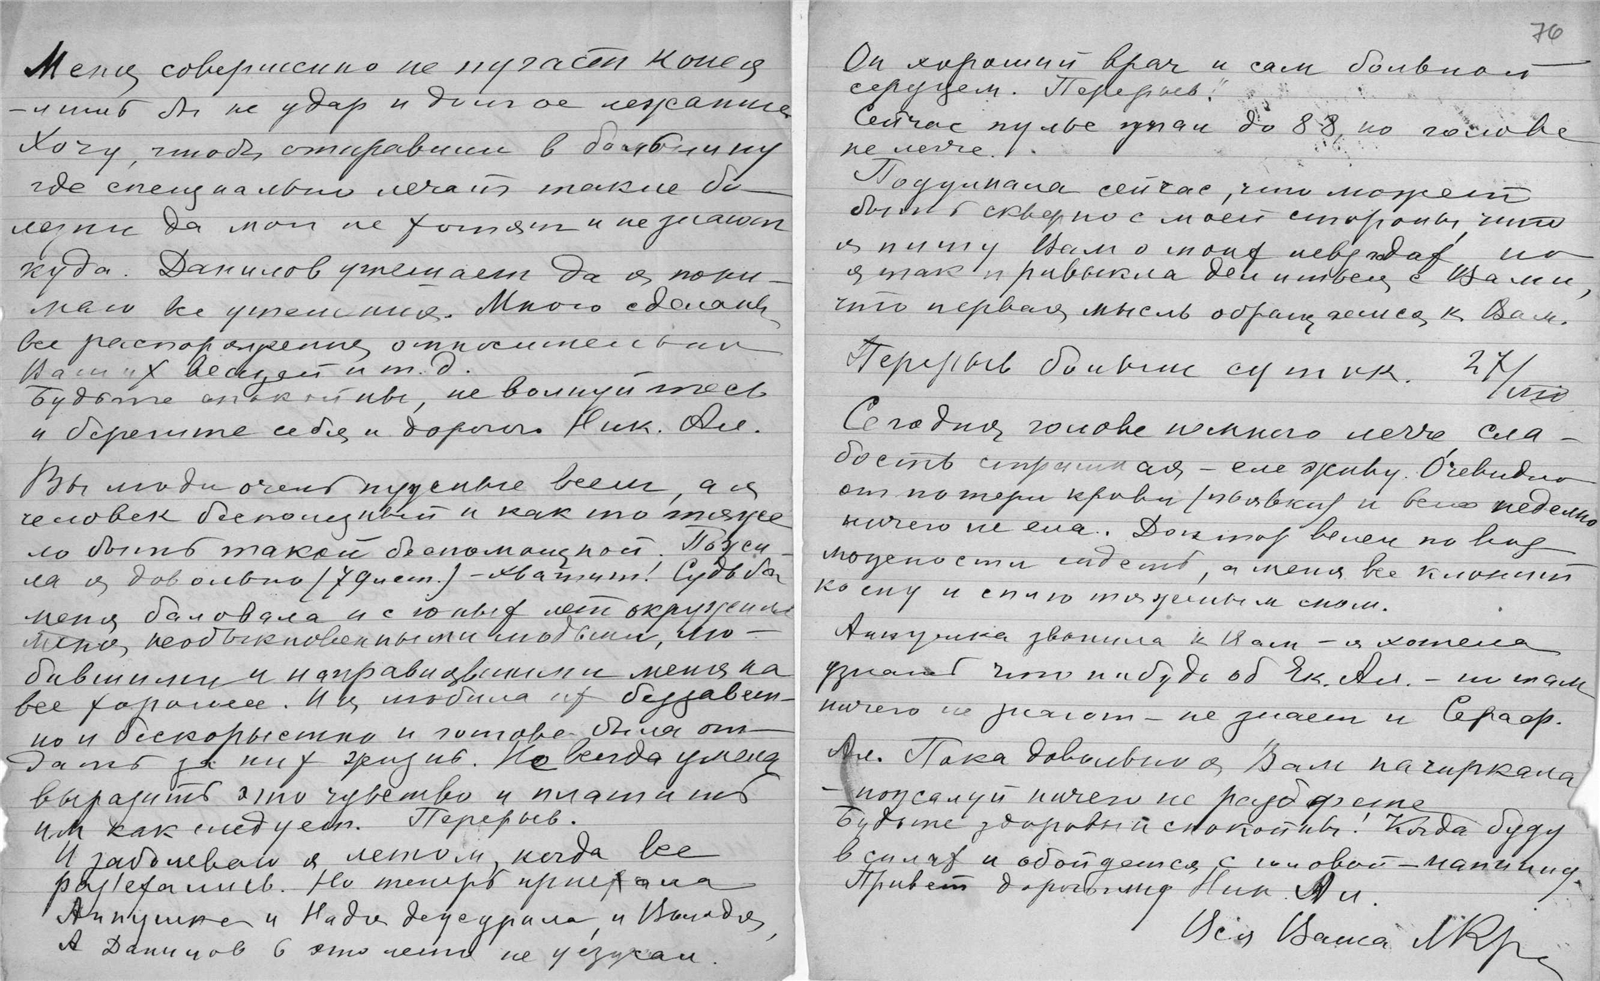 Меня совершенно не пугает конец
– лишь бы не удар и долгое лежание
Хочу, чтобы отправили в больницу
где специально лечат такие бо-
лезни да мои не хотят и не знают
куда. Данилов утешает да я пони-
маю все утешения. Много сделано
все распоряжения относительно
Ваших вещей и т. д.
Будьте спокойны, не волнуйтесь
и берегите себя и дорогого Ник. Ал.
Вы люди очень нужные всем, а я
человек бесполезный и как то тяже
ло быть такой беспомощной. Пожи-
ла я довольно (79 лет.) – хватит! Судьба
меня баловала и с юных лет окружила
меня необыкновенными людьми, лю-
бившими и направлявшими меня на
все хорошее. И я любила их беззавет-
но и бескорыстно и готова была от-
дать за них жизнь. Не всегда умела
выразить это чувство и платить
им как следует. Перерыв.
И заболеваю я летом, когда все
раз'ехались. Но теперь приехала
Аннушка и Надя дежурила, и Володя,
А Данилов в это лето не уезжал.
76
Он хороший врач и сам больной
сердцем. Перерыв!
Сейчас пульс упал до 88, но голове
не легче.
Подумала сейчас, что может
быть скверно с моей стороны, что
я пишу Вам о моих невзгодах, но
я так привыкла делиться с Вами,
что первая мысль обращается к Вам.
Перерыв больше суток. 27/VIII
Сегодня голове немного легче сла-
бость страшная – еле живу. Очевидно
от потери крови (пиявки) и всю неделю
ничего не ела. Доктор велел по воз
можности сидеть, а меня все клонит
ко сну и сплю тяжелым сном.
Аннушка звонила к Вам – я хотела
узнать что нибудь об Ек. Ал. – но там
ничего не знают – не знает и Сераф.
Ал. Пока довольно я Вам начиркала
– пожалуй ничего не разберете
Будьте здоровы и спокойны! Когда буду
в силах и обойдется с головой – напишу.
Привет дорогому Ник. Ал.
Вся Ваша МКр